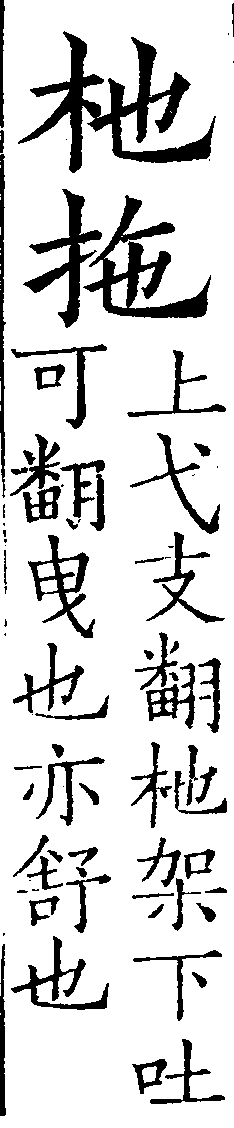 杝拖
上弋支翻杝架下吐
可翻曳也亦舒也